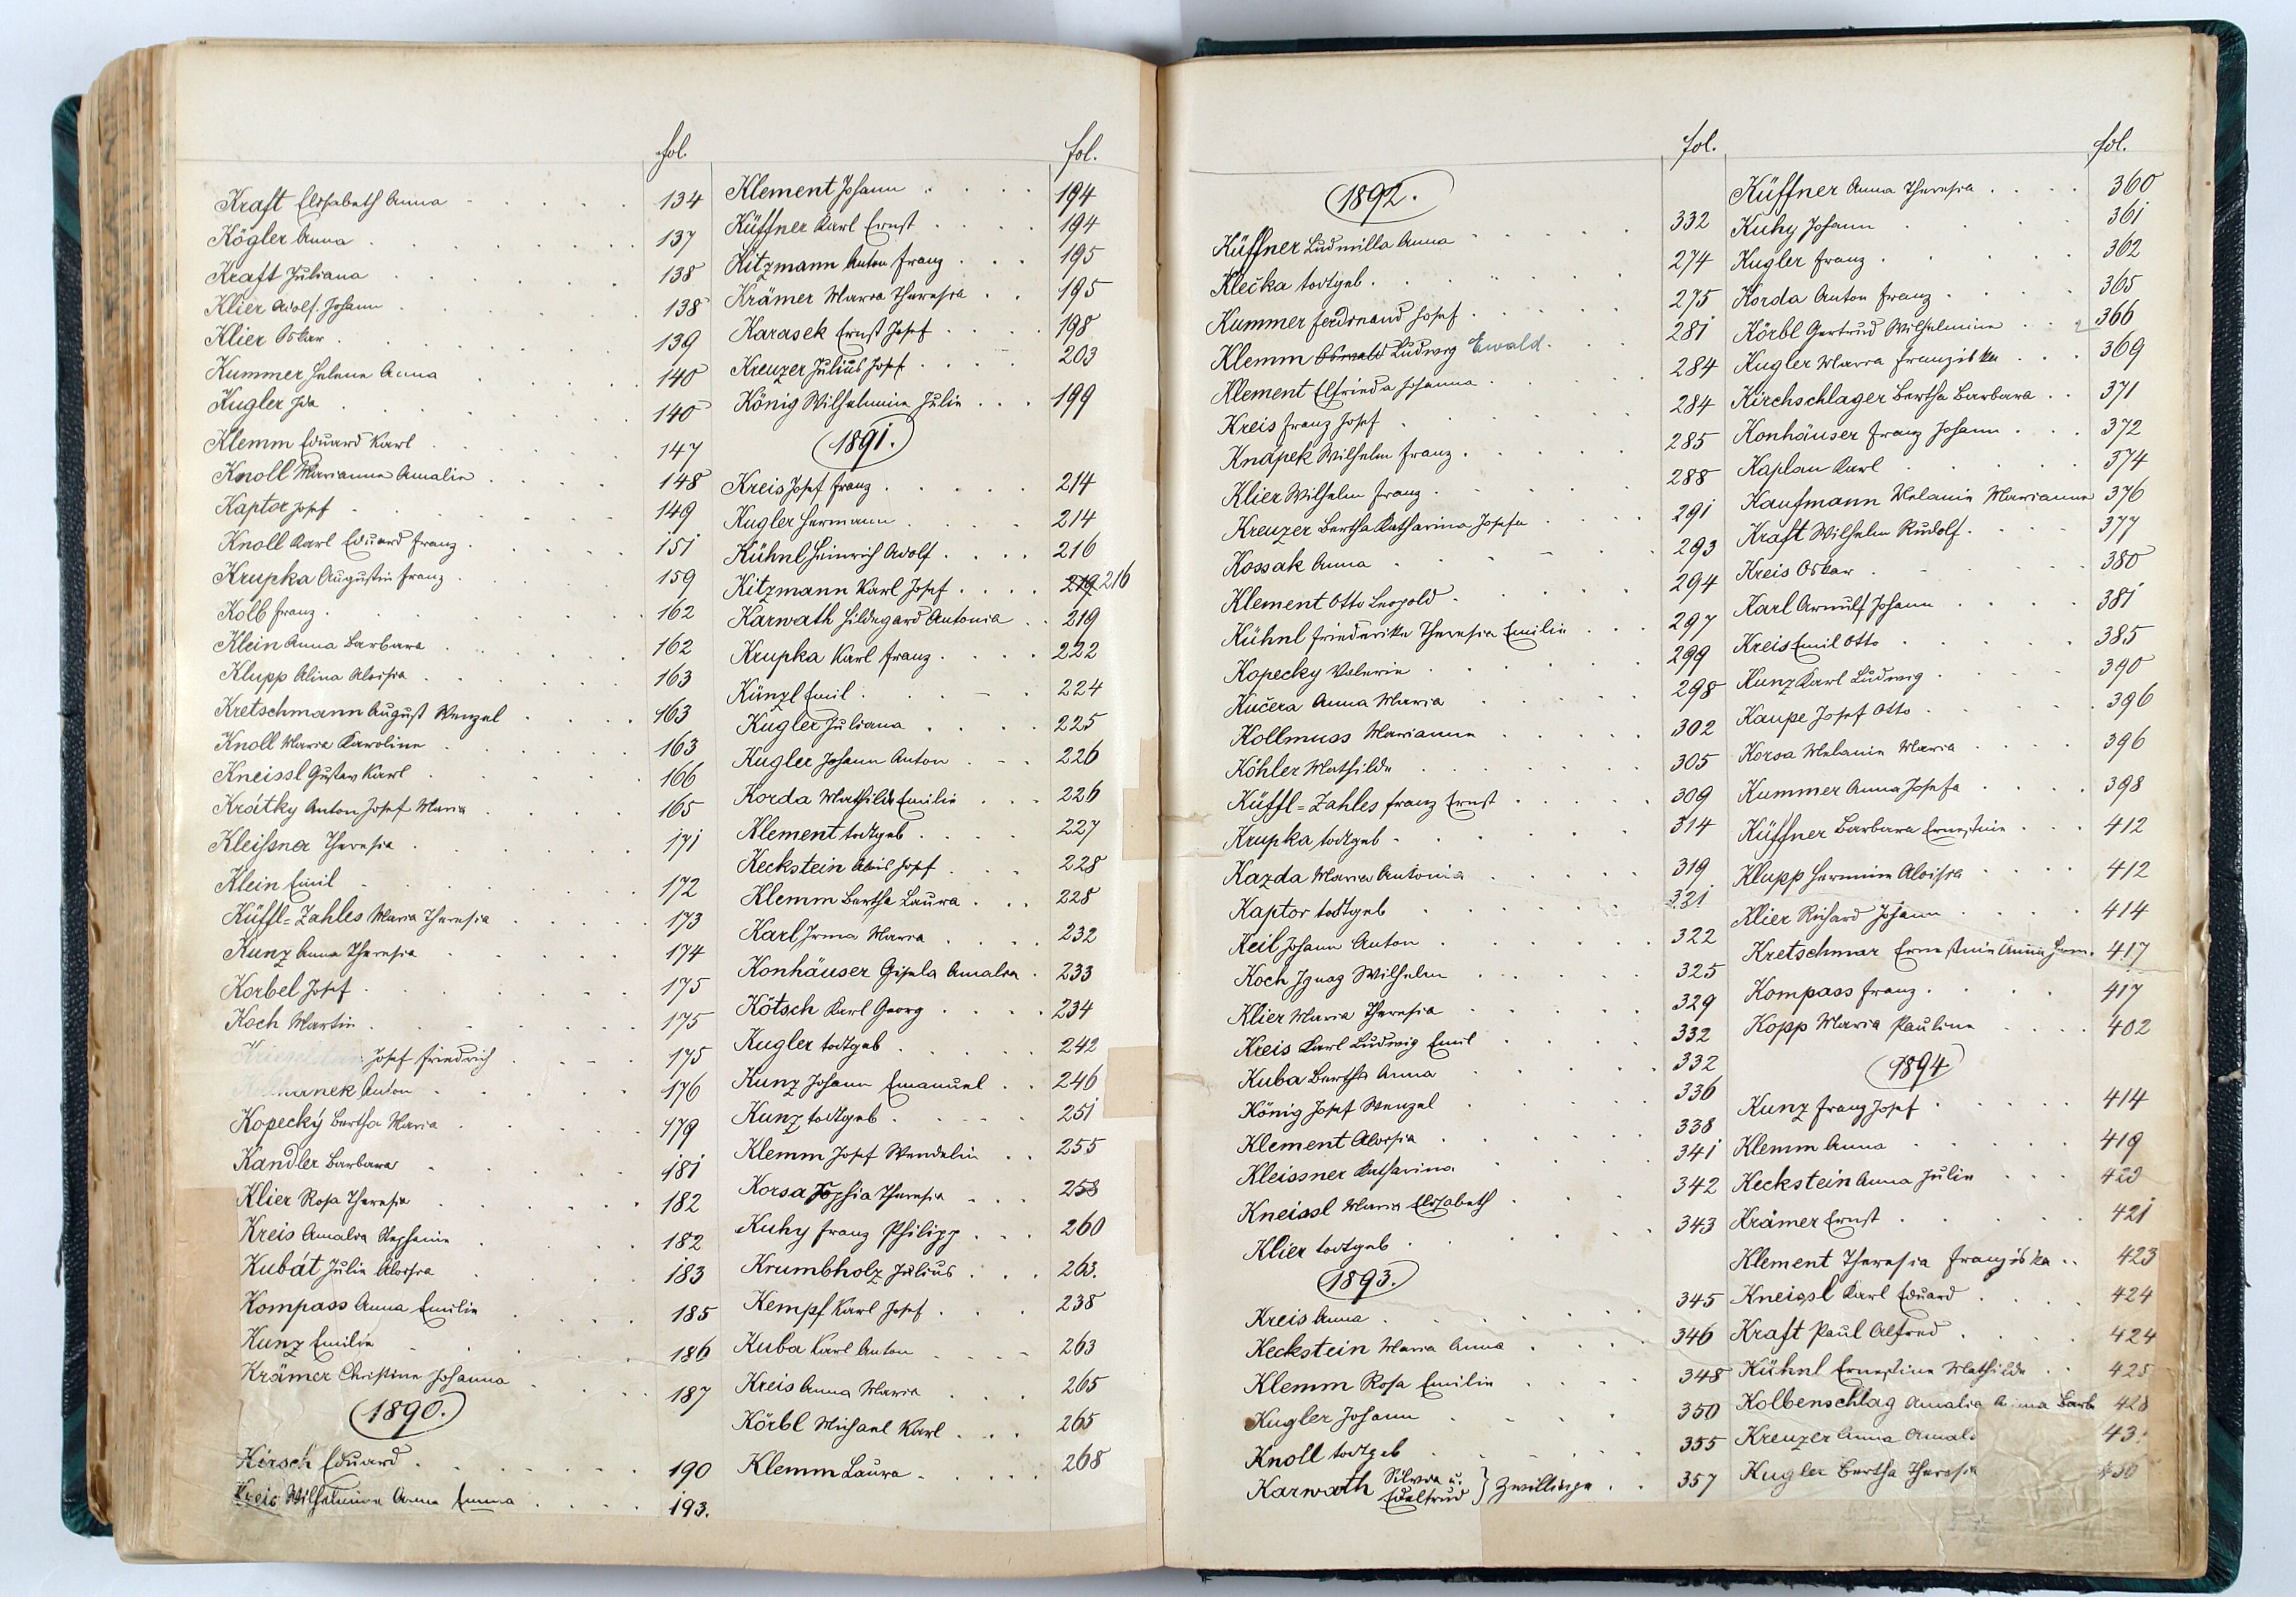 fol.
Kraft Elisabeth Anna 134
Kögler Anna 137
Kraft Juliana 138
Klier Adolf Johann 138
Klier Oskar 139
Kummer Helene Anna 140
Kugler Ida 140
Klemm Eduard Karl 147
Knoll Marianna Amalie 148
Kaptor Josef 149
Knoll Karl Eduard Franz 151
Krupka Augustin Franz 159
Kolb Franz 162
Klein Anna Barbara 162
Klupp Alina Aloisia 163
Kretschmann August Wenzel 163
Knoll Maria Karoline 163
Kneissl Gustav Karl 166
Krátky Anton Josef Maria 165
Kleissner Theresia 171
Klein Emil 172
Küffl=Zahles Maria Theresia 173
Kunz Anna Theresia 174
Korbel Josef 175
Koch Martin 175
Josef Friedrich 175
Anton 176
Kopecký Bertha Maria 179
Kandler Barbara 181
Klier Rosa Theresia 182
Kreis Amalia Stephanie 182
Kubát Julie Aloisia 183
Kompass Anna Emilie 185
Kunz Emilie 186
Krämer Christine Johanna 187
1890.
Kirsch Eduard 190
Kreis Wilhelmine Anna Emma 193.
fol.
Klement Johann 194
Küffner Karl Ernst 194
Kitzmann Anton Franz 195
Krämer Maria Theresia 195
Karasek Ernst Josef 198
Kreuzer Julius Josef 203
König Wilhelmine Julie 199
1891.
Kreis Josef Franz 214
Kugler Hermann 214
Kühnl Heinrich Adolf 216
Kitzmann Karl Josef 219 216
Karwath Hildegard Antonia 219
Krupka Karl Franz 222
Künzl Emil 224
Kugler Juliana 225
Kugler Johann Anton 226
Korda Mathilde Emilie 226
Klement todtgeb 227
Keckstein Alois Josef 228
Klemm Bertha Laura 228
Karl Irma Maria 232
Konhäuser Gisela Amalia 233
Kötsch Karl Georg 234
Kugler todtgeb 242
Kunz Johann Emanuel 246
Kunz todtgeb 251
Klemm Josef Wendelin 255
Korsa Sophia Theresia 258
Kuhy Franz Philipp 260
Krumbholz Julius 263.
Kempf Karl Josef 238
Kuba Karl Anton 263
Kreis Anna Maria 265
Körbl Michael Karl 265
Klemm Laura 268
fol.
1892.
Küffner Ludmilla Anna 332
Klečka todtgeb 274
Kummer Ferdinand Josef 275
Klemm Oswald Ludwig Ewald 281
Klement Elfrieda Johanna 284
Kreis Franz Josef 284
Knápek Wilhelm Franz 285
Klier Wilhelm Franz 288
Kreuzer Bertha Katharina Josefa 291
Kossak Anna 293
Klement Otto Leopold 294
Kühnl Friederike Theresia Emilie 297
Kopecky Valerie 299
Kučera Anna Maria 298
Kollmuss Marianne 302
Köhler Mathilde 305
Küffl=Zahles Franz Ernst 309
Krupka todtgeb 314
Kazda Maria Antonia 319
Kaptor todtgeb 321
Keil Johann Anton 322
Koch Ignaz Wilhelm 325
Klier Maria Theresia 329
Kreis Karl Ludwig Emil 332
Kuba Bertha Anna 332
König Josef Wenzel 336
Klement Aloisia 338
Kleissner Katharina 341
Kneissl Maria Elisabeth 342
Klier todtgeb 343
1893.
Kreis Anna 345
Keckstein Maria Anna 346
Klemm Rosa Emilie 348
Kugler Johann 350
Knoll todtgeb 355
Karwath Silvia u. Edeltrud } Zwillinge 357
fol.
Küffner Anna Theresia 360
Kuhy Johann 361
Kugler Franz 362
Korda Anton Franz 365
Körbl Gertrud Wilhelmine 366
Kugler Maria Franziska 369
Kirchschlager Bertha Barbara 371
Konhäuser Franz Johann 372
Kaplan Karl 374
Kaufmann Melanie Marianne 376
Kraft Wilhelm Rudolf 377
Kreis Oskar 380
Karl Arnulf Johann 381
Kreis Emil Otto 385
Kunz Karl Ludwig 390
Kaupe Josef Otto 396
Korsa Melanie Maria 396
Kummer Anna Josefa 398
Küffner Barbara Ernestine 412
Klupp Hermine Aloisia 412
Klier Richard Johann 414
Kretschmar Ernestine Anna Herm. 417
Kompass Franz 417
Kopp Maria Pauline 402
1894
Kunz Franz Josef 414
Klemm Anna 419
Keckstein Anna Julie 420
Krämer Ernst 421
Klement Theresia Franziska 423
Kneissl Karl Eduard 424
Kraft Paul Alfred 424
Kühnl Ernestine Mathilde 425
Kolbenschlag Amalia Anna Barb 428
Kreuzer Anna
Kugler Bertha Theresia